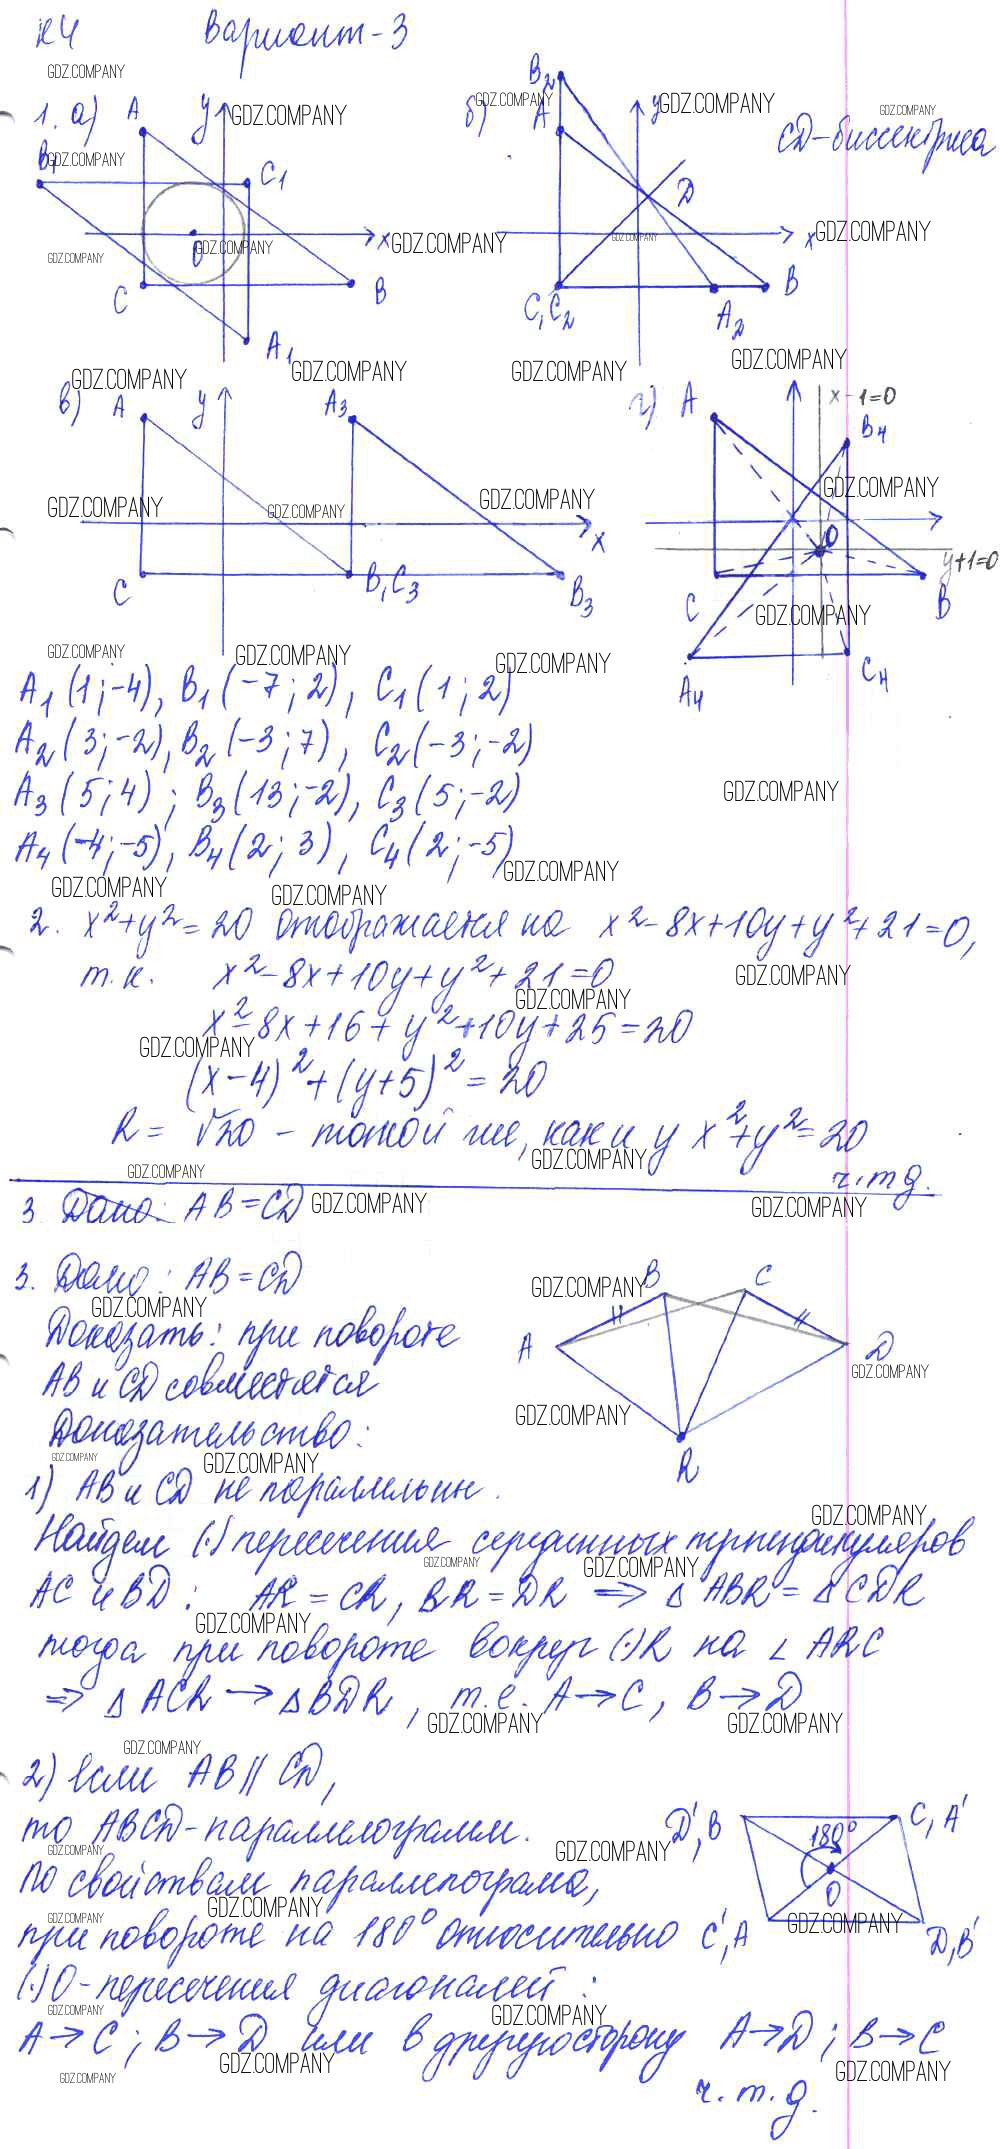 К4 Вариант-3
1. а)
A
y
B1
C1
x
O
C
B
A1
б)
B2
A
y
CD-биссектриса
D
x
C, C2
B
A2
в)
A
y
A3
x
C
B, C3
B3
г)
A
x-1=0
B4
O
y+1=0
C
B
A4
C4
A1 (1; -4), B1 (-7; 2), C1 (1; 2)
A2 (3; -2), B2 (-3; 7), C2 (-3; -2)
A3 (5; 4); B3 (13; -2), C3 (5; -2)
A4 (-4; -5), B4 (2; 3), C4 (2; -5)
2. x²+y²=20 отображается на x²-8x+10y+y²+21=0,
т.к. x²-8x+10y+y²+21=0
x²-8x+16+y²+10y+25=20
(x-4)²+(y+5)²=20
R=√20 - такой же, как и у x²+y²=20
ч.т.д.
3. Дано: AB=CD
3. Дано: AB=CD
Доказать: при повороте
AB и CD совместятся
Доказательство:
B
C
A
D
R
1) AB и CD не параллельны.
Найдем (·) пересечения серединных перпендикуляров
AC и BD: AR=CR, BR=DR ⇒ △ABR=△CDR
тогда при повороте вокруг (·)R на ∠ARC
⇒ △ACR→△BDR, т.е. A→C, B→D
2) Если AB||CD,
то ABCD-параллелограмм.
По свойствам параллелограма,
при повороте на 180° относительно
(·)O-пересечения диагоналей:
A→C; B→D или в другую сторону A→D; B→C
ч.т.д.
D', B
C, A'
180°
O
C', A
D, B'
GDZ.COMPANY